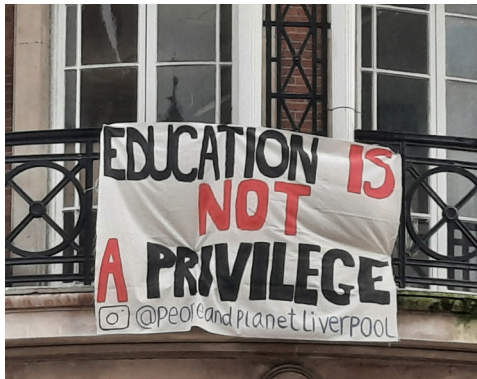 EDUCATION IS
NOT
A PRIVILEGE
@peopleandPlanetLiverPOOL